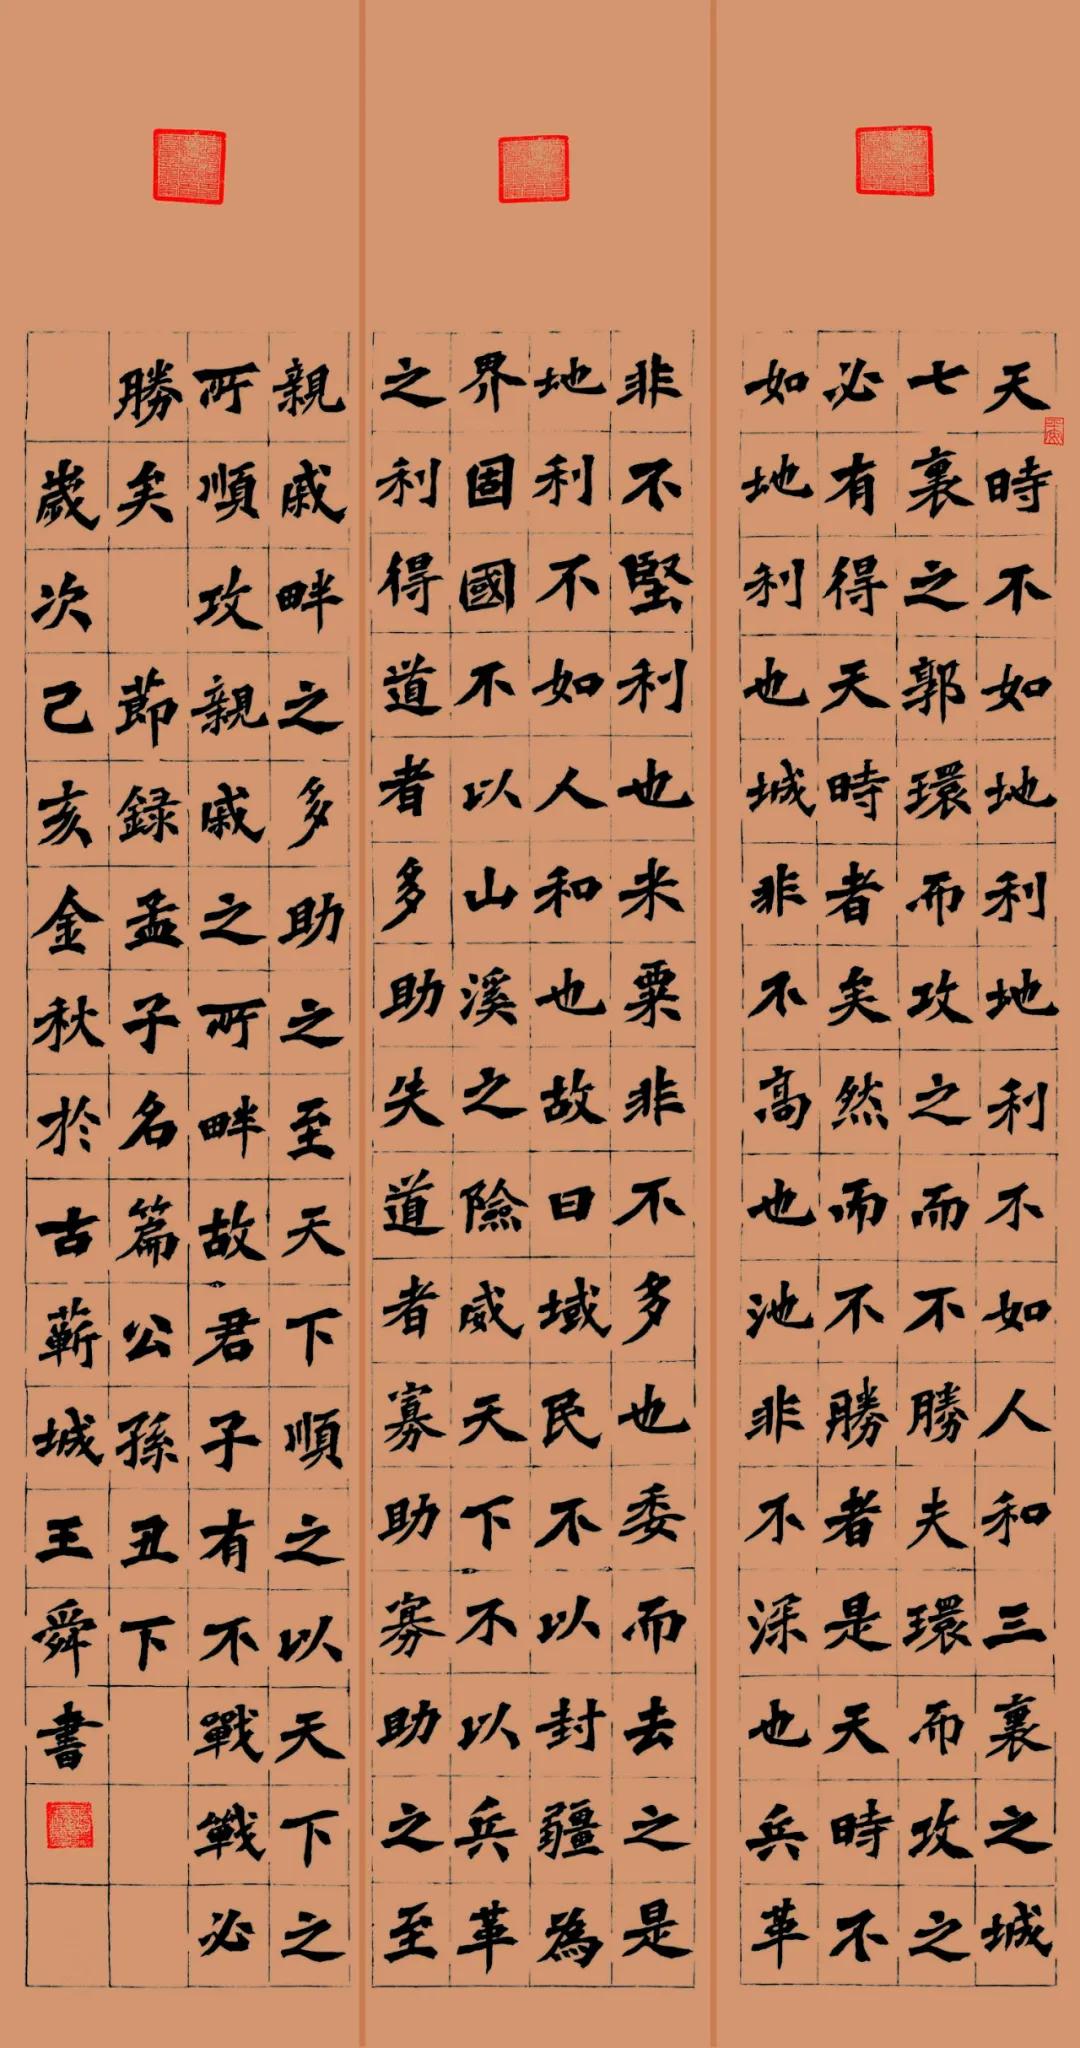 天時不如地利地利不如人和三裏之城
七裏之郭環而攻之而不勝夫環而攻之
必有得天時者矣然而不勝者是天時不
如地利也城非不高也池非不深也兵革
非不堅利也米粟非不多也委而去之是
地利不如人和也故曰域民不以封疆為
界固國不以山溪之險威天下不以兵革
之利得道者多助失道者寡助寡助之至
親戚畔之多助之至天下順之以天下之
所順攻親戚之所畔故君子有不戰戰必
勝矣 節錄孟子名篇公孫丑下
歲次己亥金秋於古蘄城王舜書